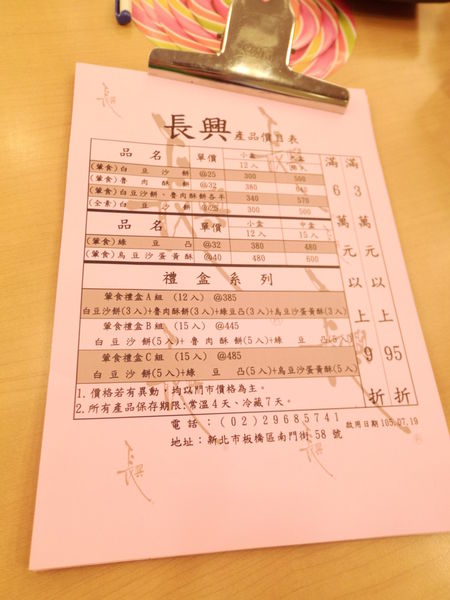 長興 產品價目表
品名 單價 小盒 12入
(葷食)白豆沙餅 @25 300 500
(葷食)魯肉酥餅 @32 380 640
(葷食)白豆沙餅、魯肉酥餅各半 340 570
(全素)白豆沙餅 @25 300 500
品名 單價 小盒 12入 中盒 15入
(葷食)綠豆凸 @32 380 480
(葷食)烏豆沙蛋黃酥 @40 480 600
禮盒系列
葷食禮盒A組 (12入) @385
白豆沙餅(3入)+魯肉酥餅(3入)+綠豆凸(3入)+烏豆沙蛋黃酥(3入)
葷食禮盒B組 (15入) @445
白豆沙餅(5入)+魯肉酥餅(5入)+綠豆凸(5入)
葷食禮盒C組 (15入) @485
白豆沙餅(5入)+綠豆凸(5入)+烏豆沙蛋黃酥(5入)
滿3萬元以上95折
滿6萬元以上9折
1. 價格若有異動，均以門市價格為主。
2. 所有產品保存期限:常溫4天、冷藏7天。
電話：(02)29685741 啟用日期105.07.19
地址：新北市板橋區南門街58號